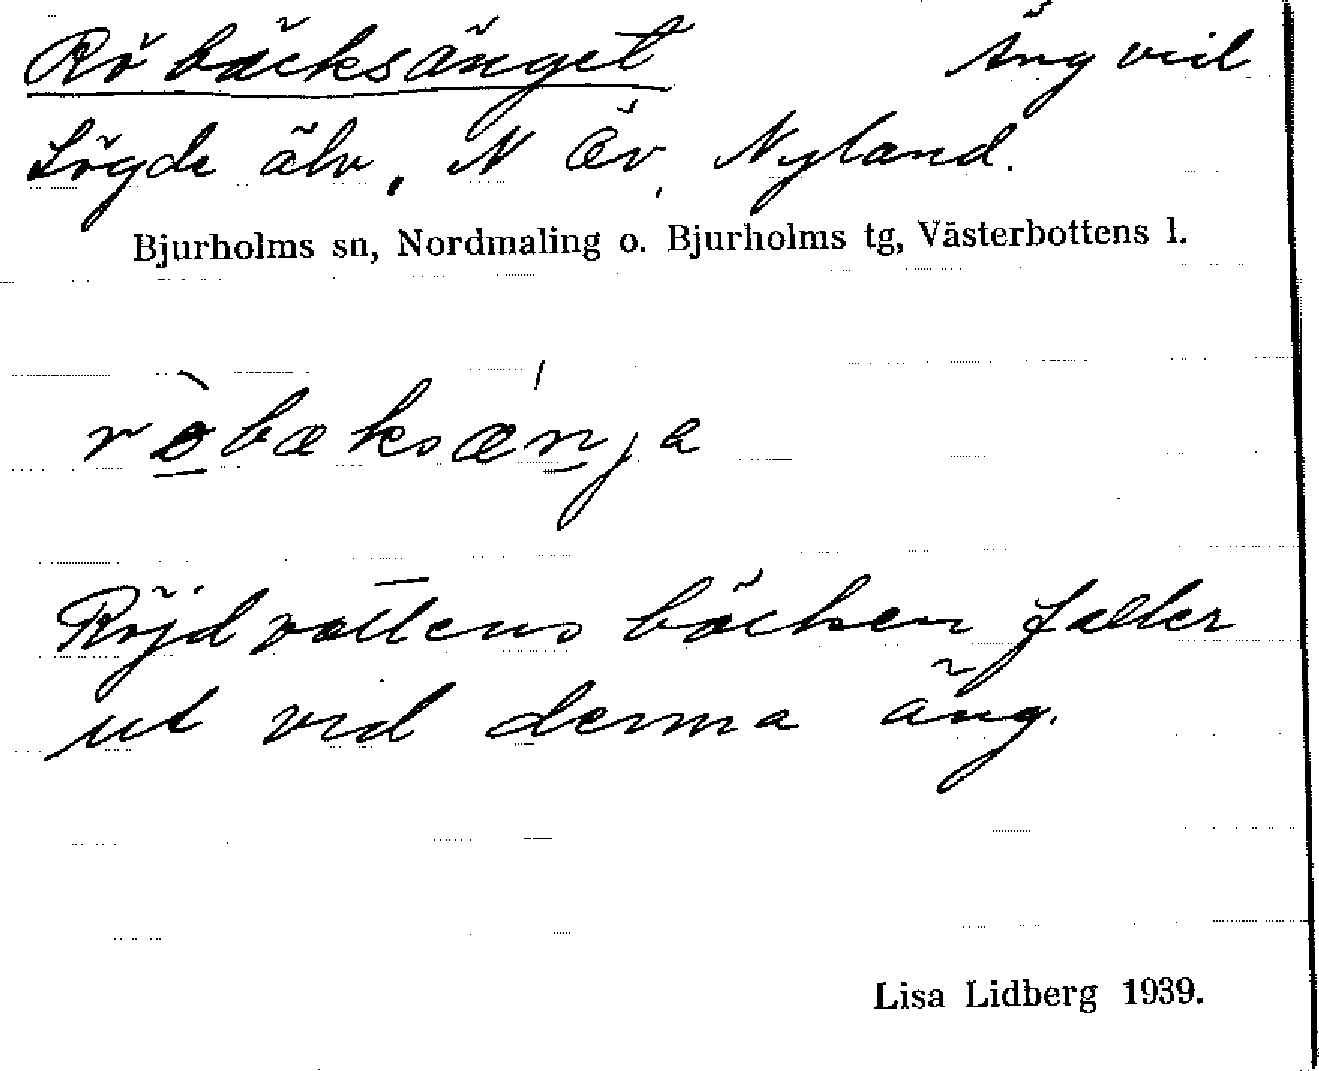 Röbäcksänget Äng vid
Lögde älv, N Öv. Nyland.
Bjurholms sn, Nordmaling o. Bjurholms tg, Västerbottens l.
ròbæksænja
Röjdvattensbäcken faller
ut vid denna äng.
Lisa Lidberg 1939.